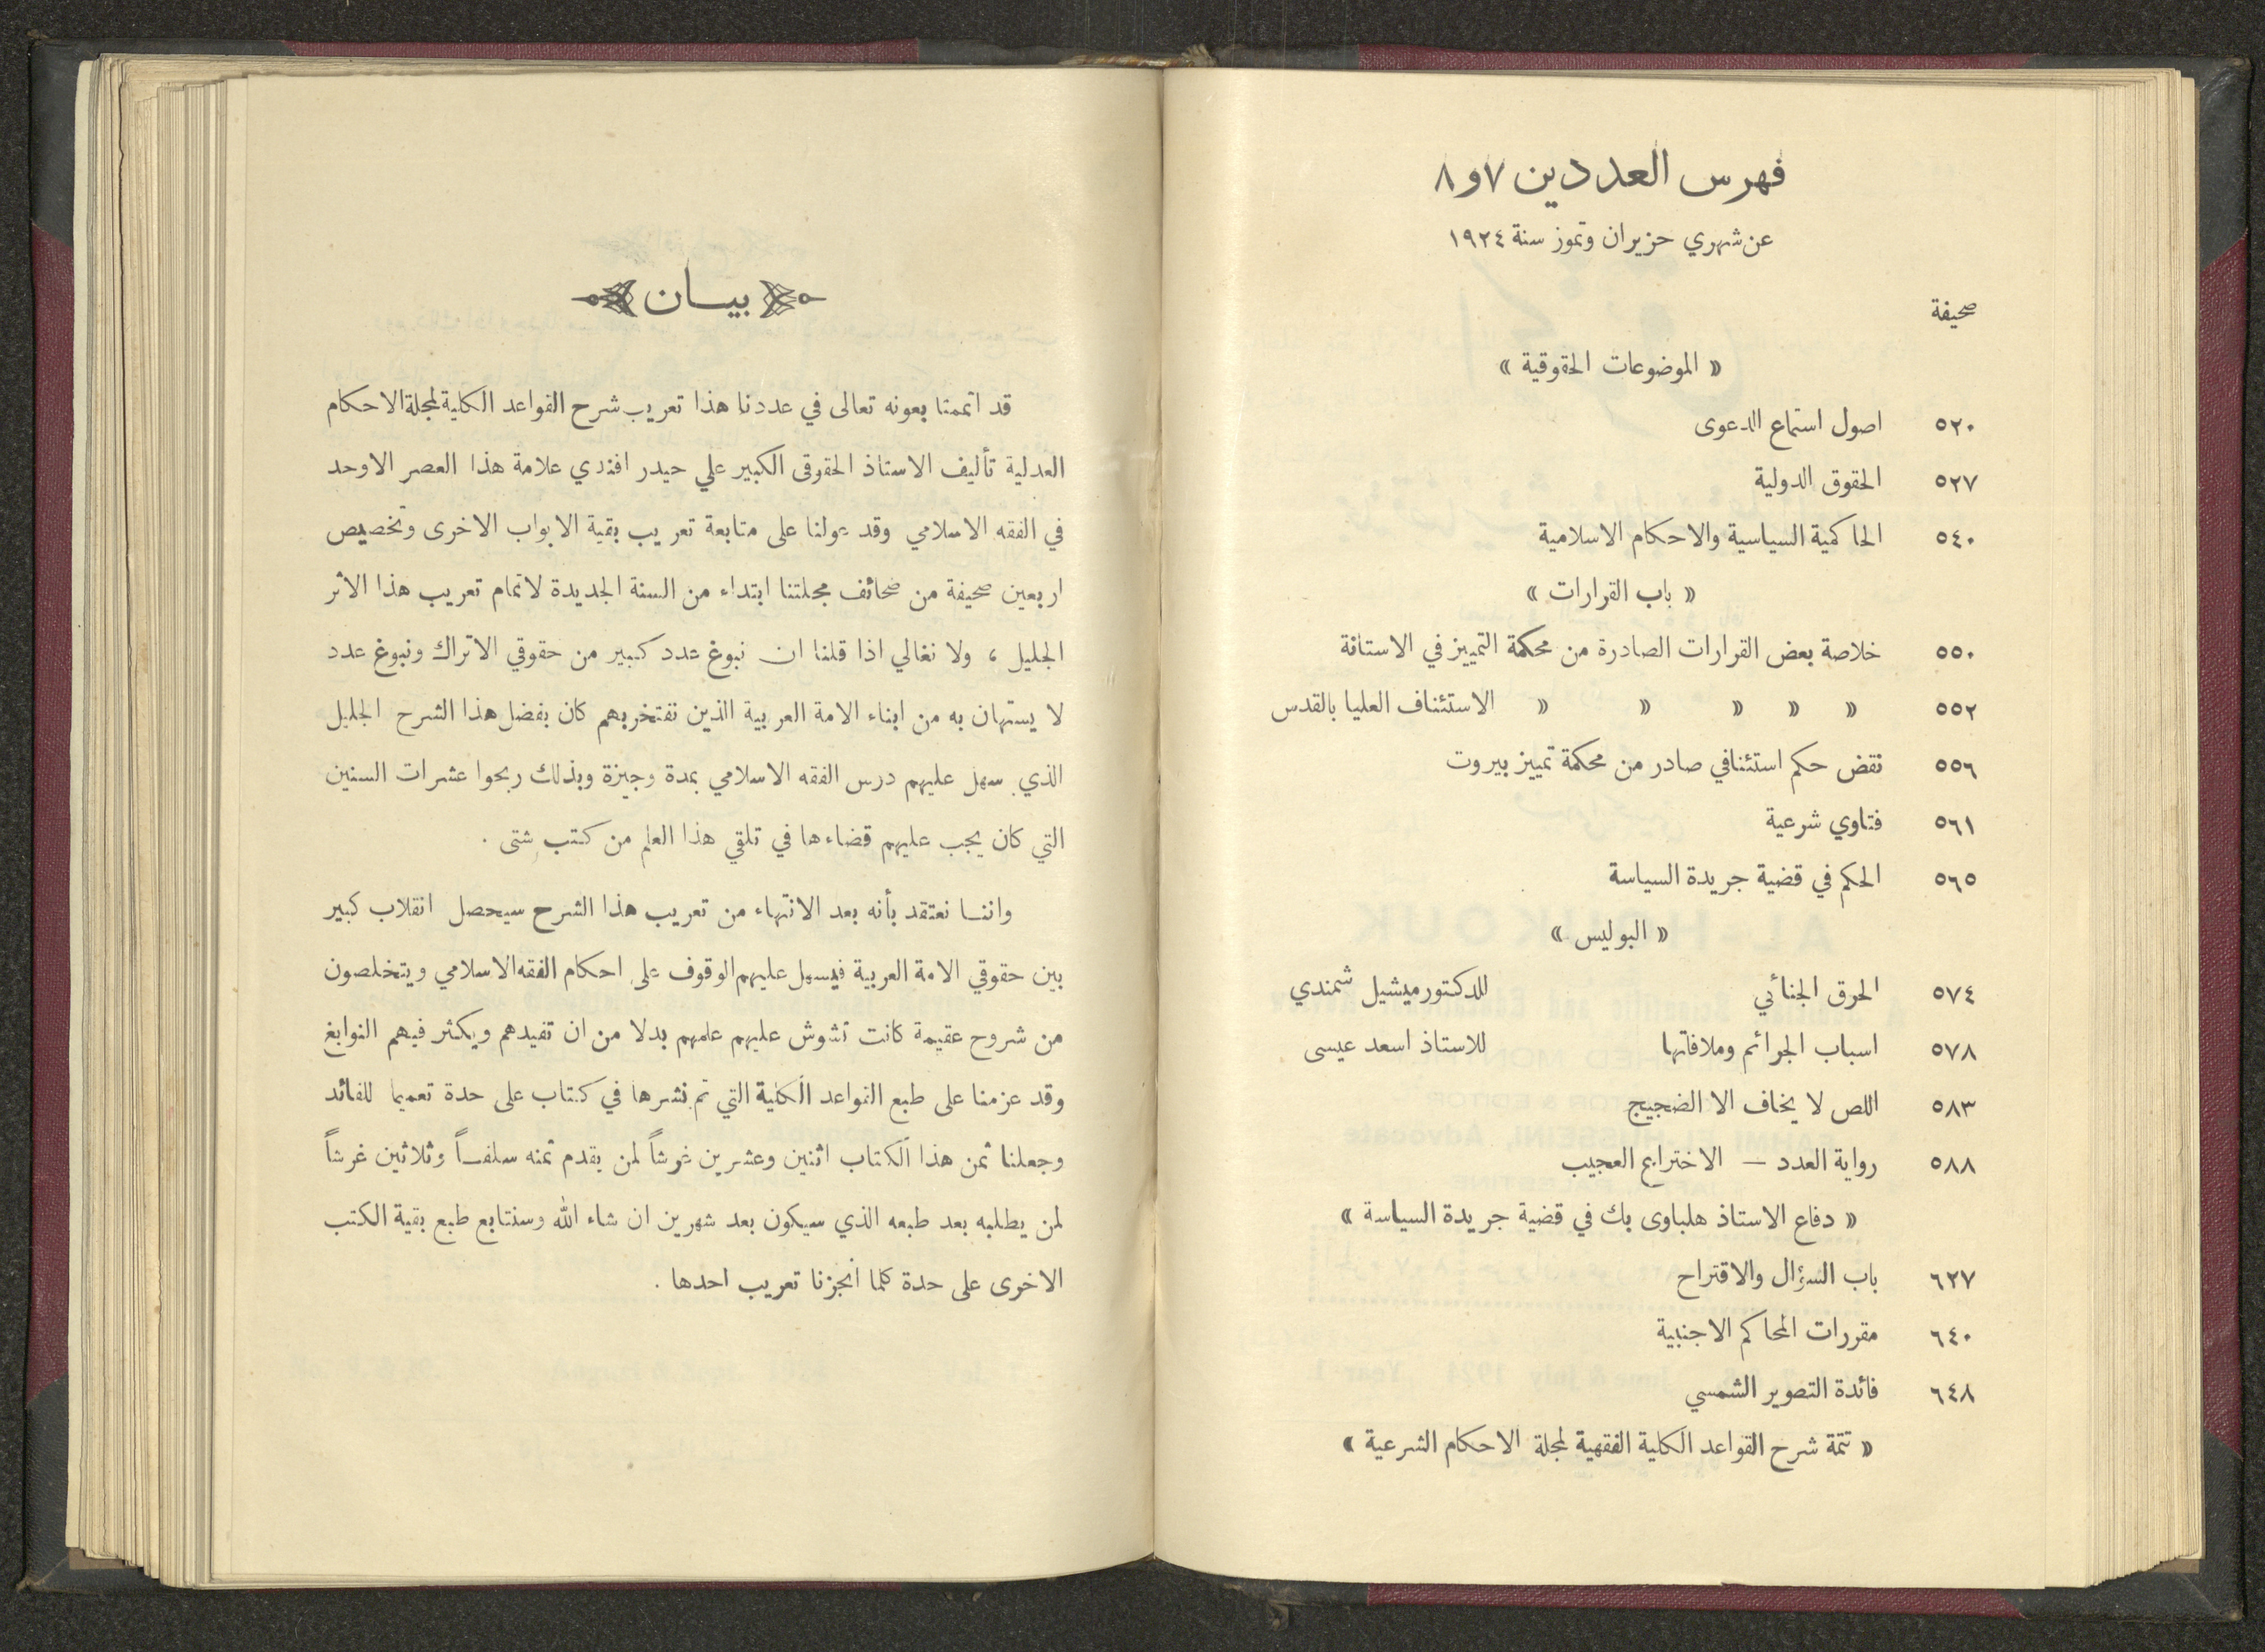 فهرس العددين ٧ و ٨
عن شهري حزيران وتموز سنة ١٩٢٤
صحيفة
« الموضوعات الحقوقية »
٥٢٠ اصول استماع الدعوى
٥٢٧ الحقوق الدولية
٥٤٠ الحاكمية السياسية والاحكام الاسلامية
« باب القرارات »
٥٥٠ خلاصة بعض القرارات الصادرة من محكمة التمييز في الاستانة
٥٥٢ » » » » » الاستئناف العليا بالقدس
٥٥٦ نقض حكم استئنافي صادر من محكمة تمييز بيروت
٥٦١ فتاوي شرعية
٥٦٥ الحكم في قضية جريدة السياسة
« البوليس »
٥٧٤ الحرق الجنائي للدكتور ميشيل شمندي
٥٧٨ اسباب الجرائم وملافاتها للاستاذ اسعد عيسى
٥٨٣ اللص لا يخاف الا الضجيج
٥٨٨ رواية العدد — الاختراع العجيب
« دفاع الاستاذ هلباوى بك في قضية جريدة السياسة »
٦٢٧ باب السؤال والاقتراح
٦٤٠ مقررات المحاكم الاجنبية
٦٤٨ فائدة التصوير الشمسي
« تتمة شرح القواعد الكلية الفقهية لمجلة الاحكام الشرعية »
بيان
قد اتممنا بعونه تعالى في عددنا هذا تعريب شرح القواعد الكلية لمجلة الاحكام
العدلية تأليف الاستاذ الحقوقى الكبير علي حيدر افندي علامة هذا العصر الاوحد
في الفقه الاسلامي وقد عولنا على متابعة تعريب بقية الابواب الاخرى وتخصيص
اربعين صحيفة من صحائف مجلتنا ابتداء من السنة الجديدة لاتمام تعريب هذا الاثر
الجليل ، ولا نغالي اذا قلنا ان نبوغ عدد كبير من حقوقي الاتراك ونبوغ عدد
لا يستهان به من ابناء الامة العربية الذين نفتخر بهم كان بفضل هذا الشرح الجليل
الذي سهل عليهم درس الفقه الاسلامي بمدة وجيزة وبذلك ربحوا عشرات السنين
التي كان يجب عليهم قضاءها في تلقي هذا العلم من كتب شتى .
واننا نعتقد بأنه بعد الانتهاء من تعريب هذا الشرح سيحصل انقلاب كبير
بين حقوقي الامة العربية فيسهل عليهم الوقوف على احكام الفقه الاسلامي ويتخلصون
من شروح عقيمة كانت تشوش عليهم علمهم بدلا من ان تفيدهم ويكثر فيهم النوابغ
وقد عزمنا على طبع القواعد الكلية التي تم نشرها في كتاب على حدة تعميما للفائد
وجعلنا ثمن هذا الكتاب اثنين وعشرين غرشاً لمن يقدم ثمنه سلفـاً وثلاثين غرشاً
لمن يطلبه بعد طبعه الذي سيكون بعد شهرين ان شاء الله وسنتابع طبع بقية الكتب
الاخرى على حدة كلما انجزنا تعريب احدها .